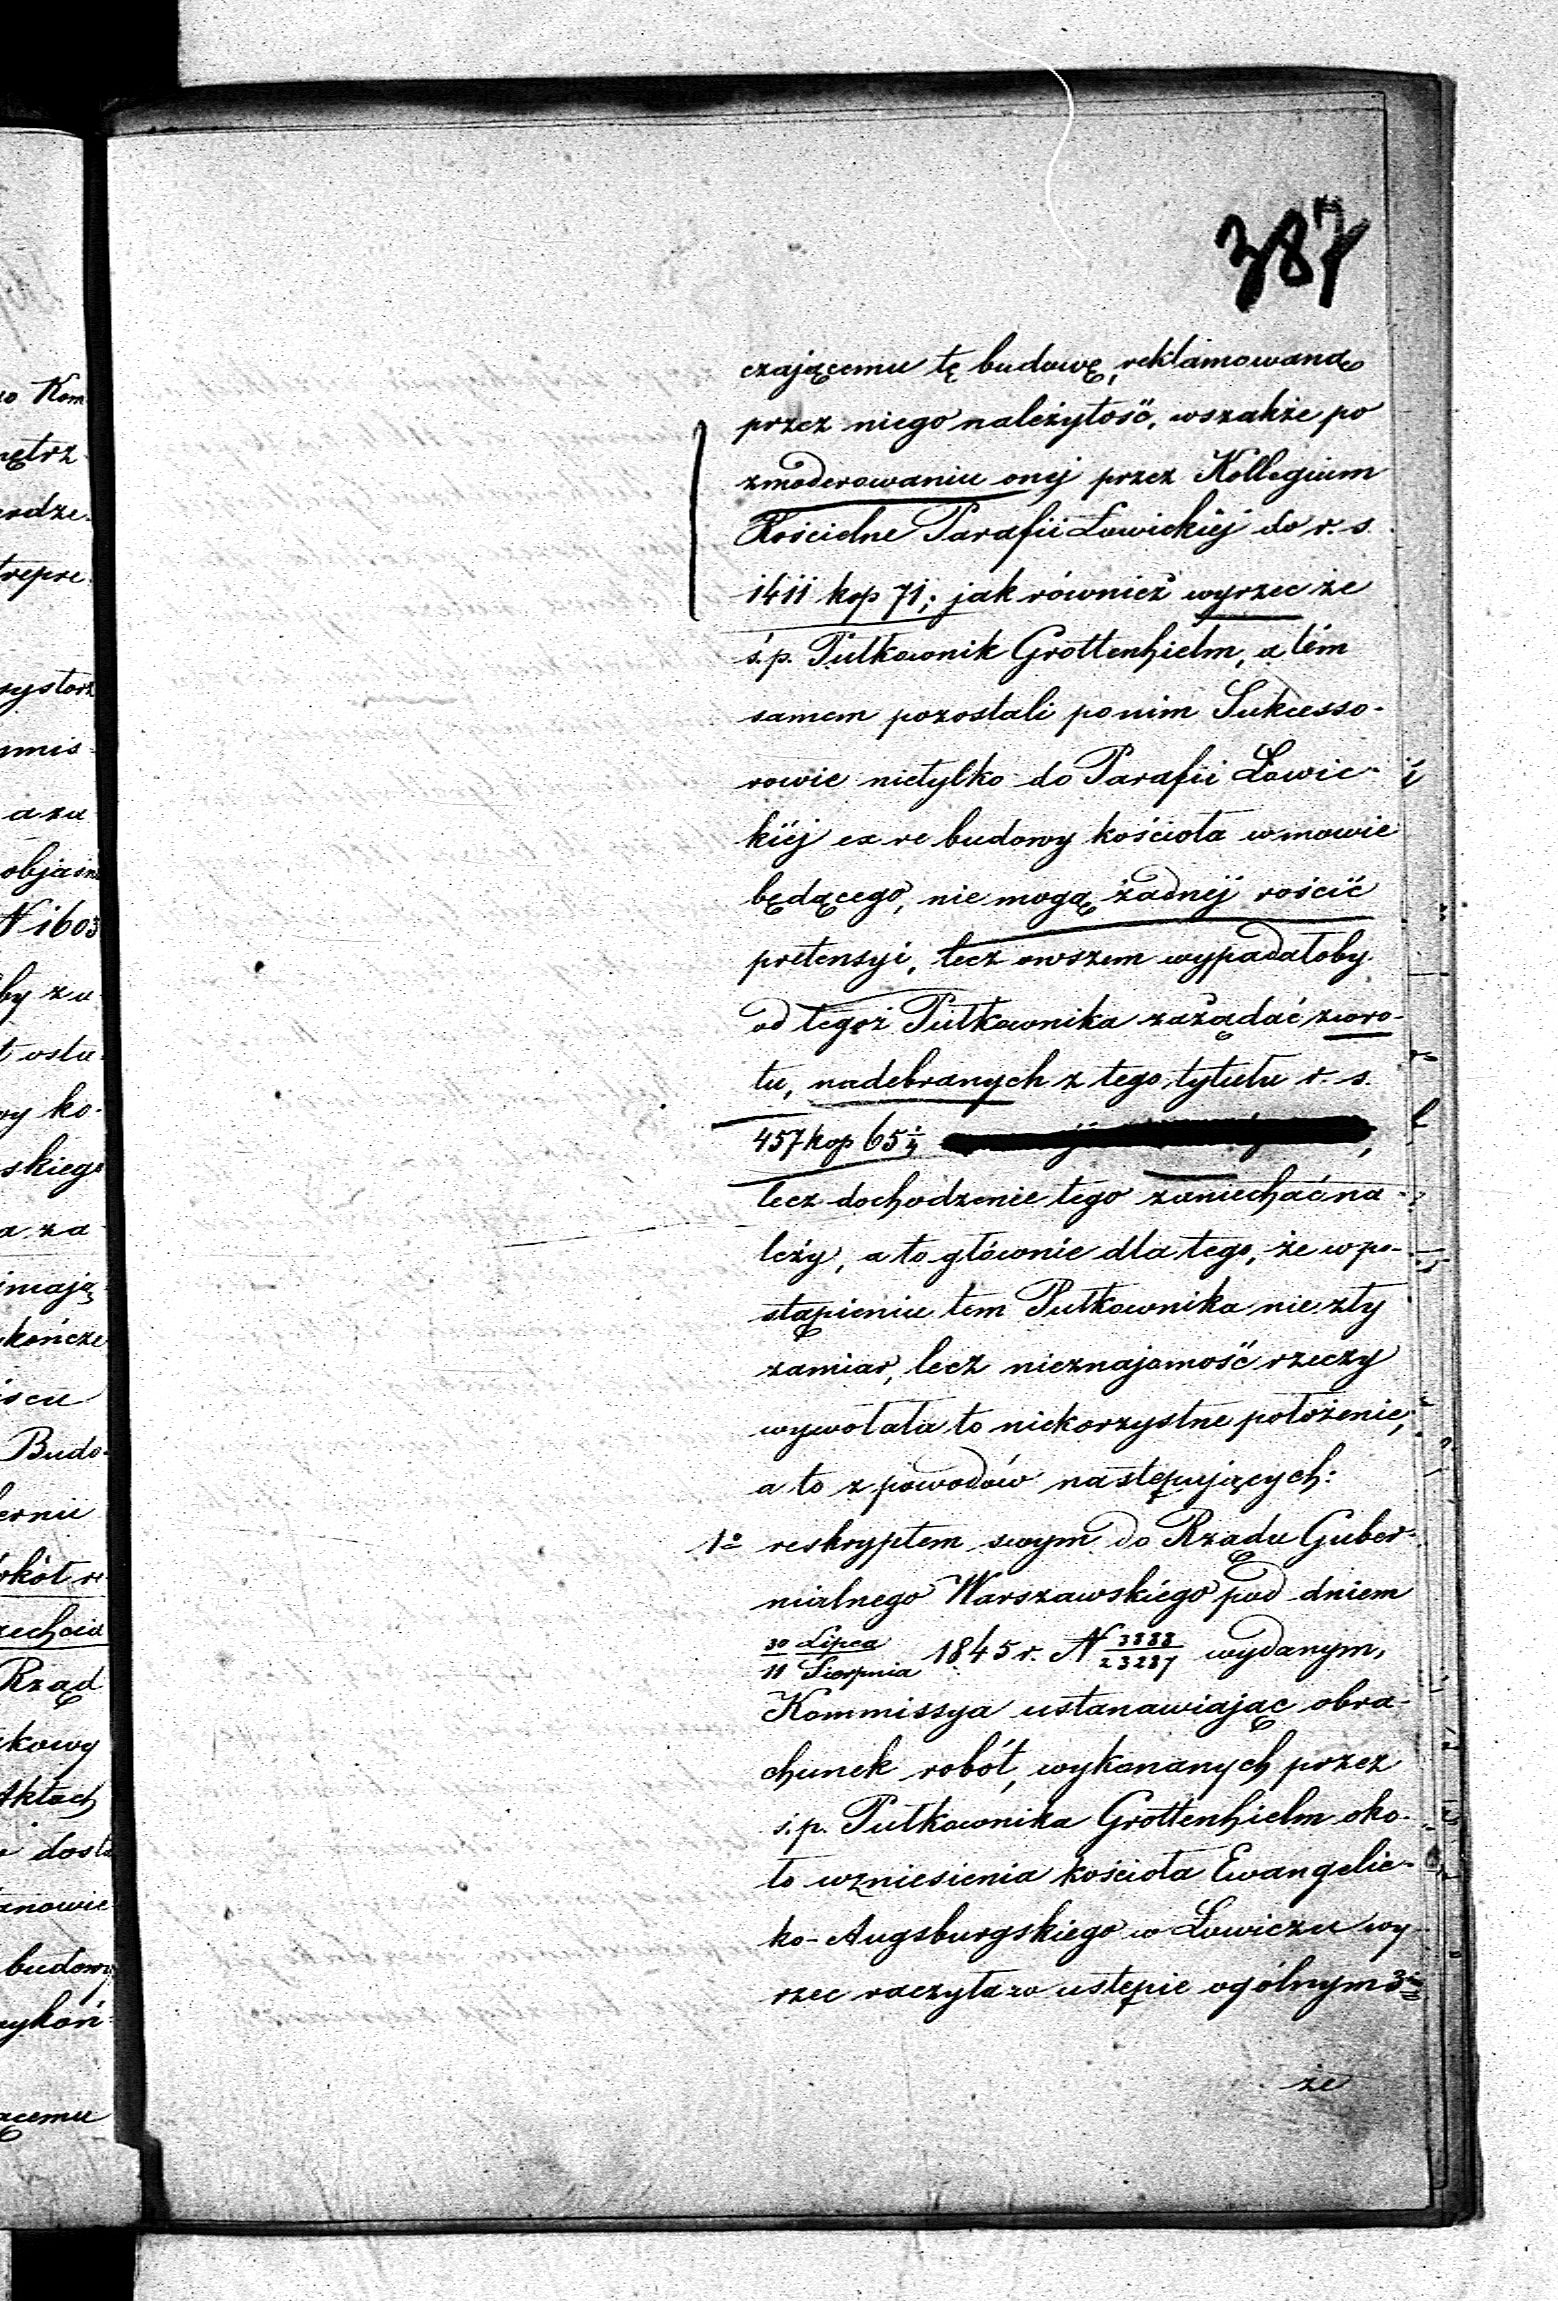 387
czającemu tę budowę, reklamowaną
przez niego należytość, wszakże po
zmoderowaniu onej przez Kollegium
Kościelne Parafii Łowickiéj do r. s.
1411 kop 71; jak również wyrzec że
ś.p. Pułkownik Grottenhielm, a tém
samem pozostali po nim Sukcesso-
rowie nietylko do Parafii Łowic-
kiéj ex re budowy kościoła w mowie
będącego, nie mogą żadnéj rościć
pretensyi, lecz owszem wypadałoby
od tegoż Pułkownika zażądać zwro-
tu, nadebranych z tego tytułu r. s.
457 kop 65 1/4
lecz dochodzenie tego zaniechać na-
leży, a to głównie dla tego, że w po-
stąpieniu tem Pułkownika nie zły
zamiar, lecz nieznajomość rzeczy
wywołała to niekorzystne położenie,
a to z powodów następujących:
1o reskryptem swym do Rządu Guber-
nialnego Warszawskiego pod dniem
30 Lipca/11 Sierpnia 1845 r. N 3888/23287 wydanym,
Kommissya ustanawiając obra-
chunek robót, wykonanych przez
ś.p. Pułkownika Grottenhielm oko-
ło wzniesienia kościoła Ewangelic-
ko-Augsburgskiego w Łowiczu wy-
rzec raczyła w ustępie ogólnym 3im
że